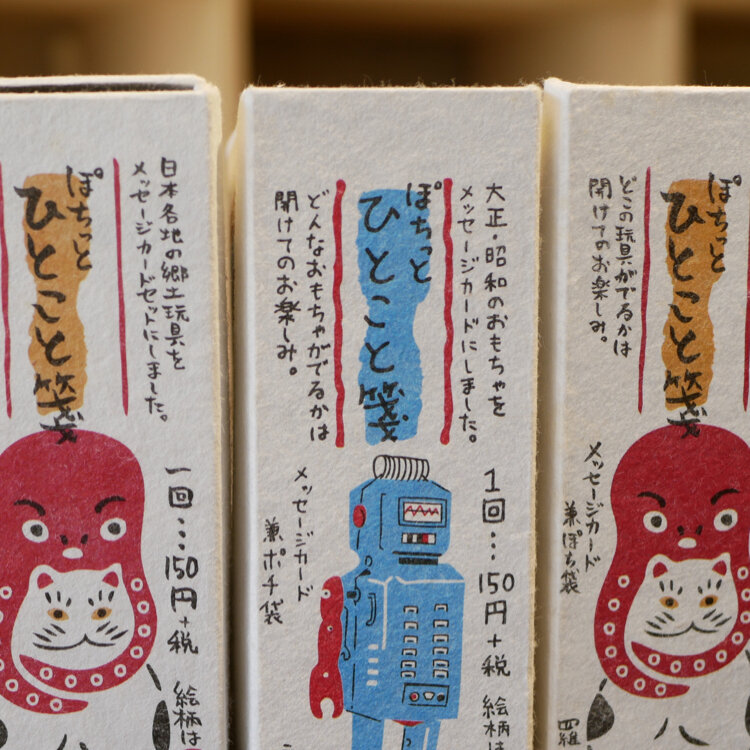 日本各地の郷土玩具を
メッセージカードセットにしました。
ぽちっと
ひとこと箋
一回…150円+税
絵柄は
大正・昭和のおもちゃを
メッセージカードにしました。
ぽちっと
ひとこと箋
どんなおもちゃがでるかは
開けてのお楽しみ。
1回…150円+税
絵柄は
メッセージカード
兼ポチ袋
ぽちっと
ひとこと箋
どこの玩具がでるかは
開けてのお楽しみ。
メッセージカード
兼ぽち袋